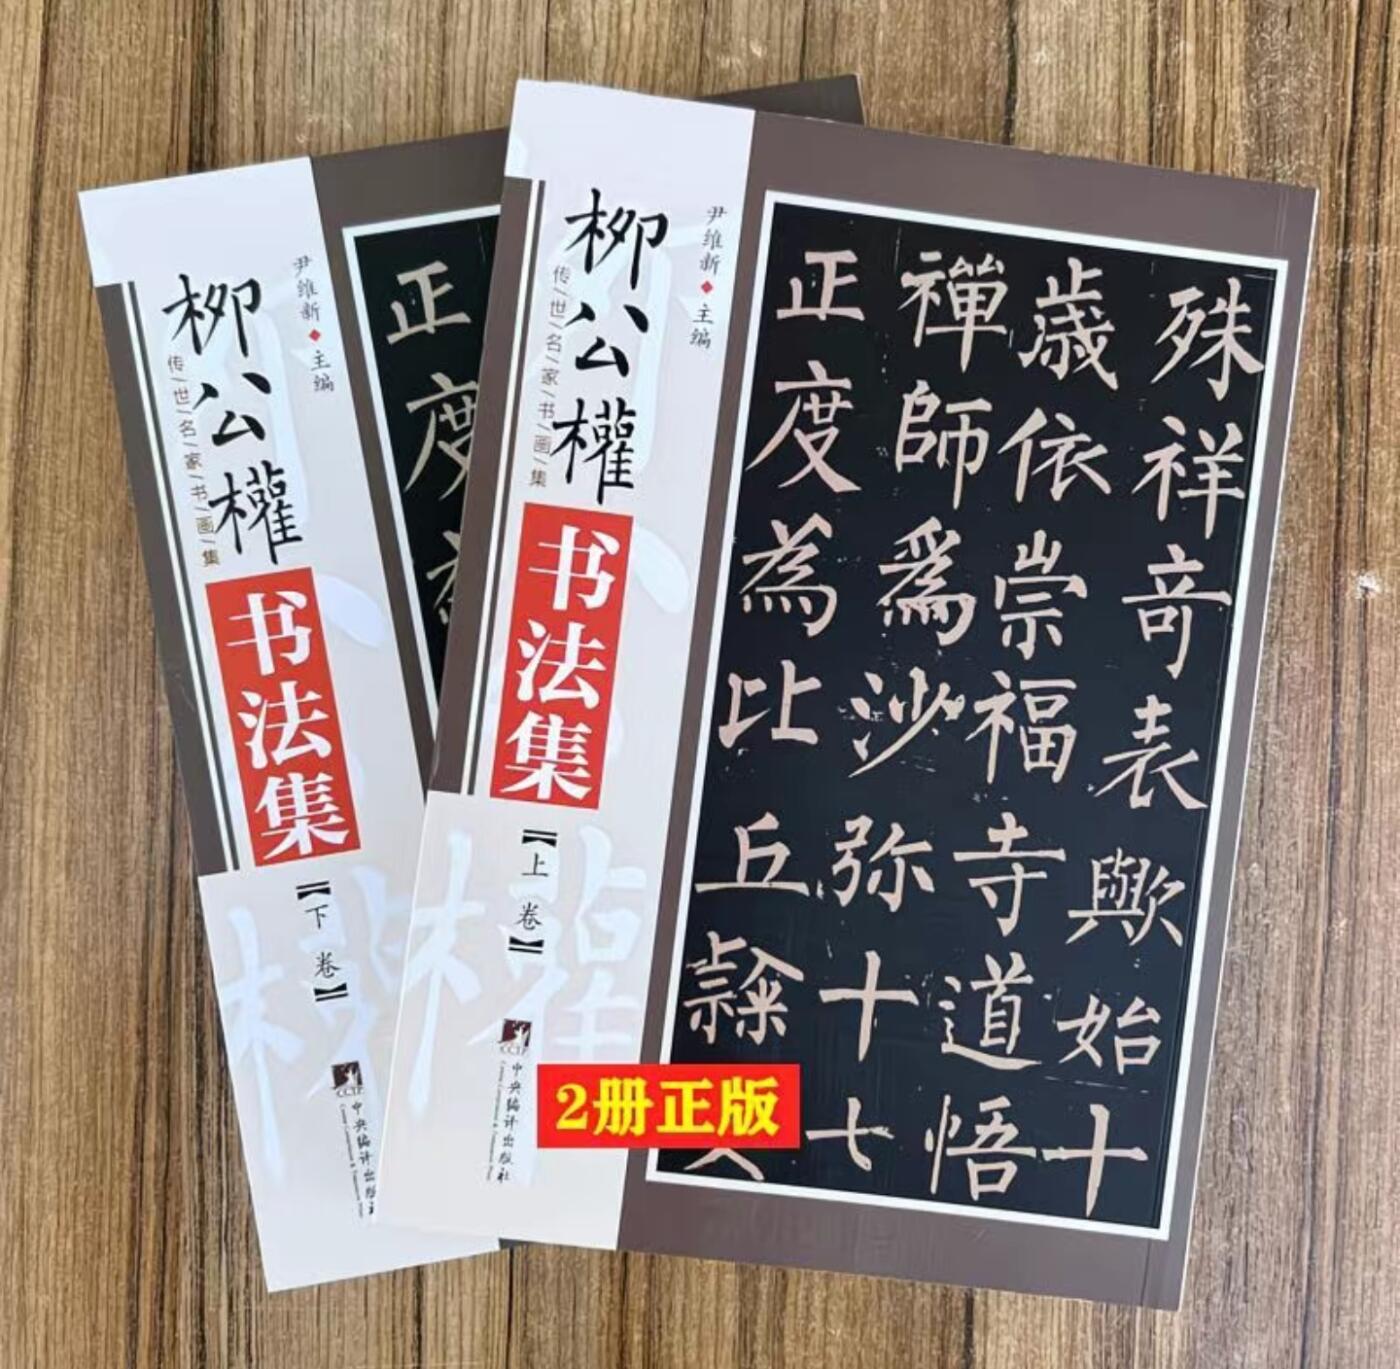 柳公權
传/世/名/家/书/画/集
书法集
【下卷】
尹维新◆主编
CCTP
中央编译出版社
正度
柳公權
传/世/名/家/书/画/集
书法集
【上卷】
尹维新◆主编
CCTP
中央编译出版社
殊祥竒表歟始十
歳依崇福寺道悟
禪師爲沙弥十七
正度為比丘隸
2册正版